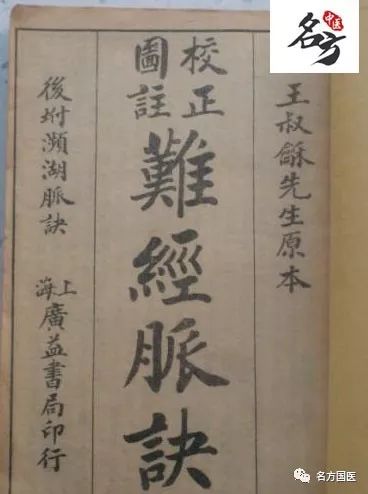 王叔龢先生原本
校正
圖註
難經脈訣
後坿瀕湖脈訣
上海廣益書局印行
名方
中医
名方国医